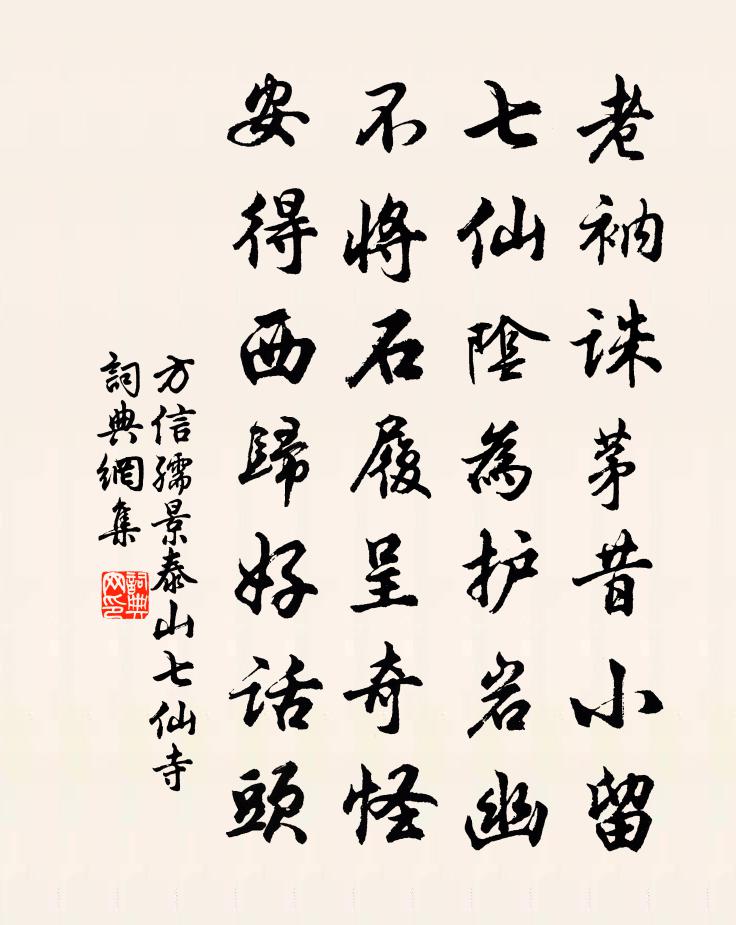 老衲誅茅昔小留
七仙陰為护岩幽
不將石履呈奇怪
安得西歸好話頭
方信孺景泰山七仙寺
詞典網集
詞典
网印